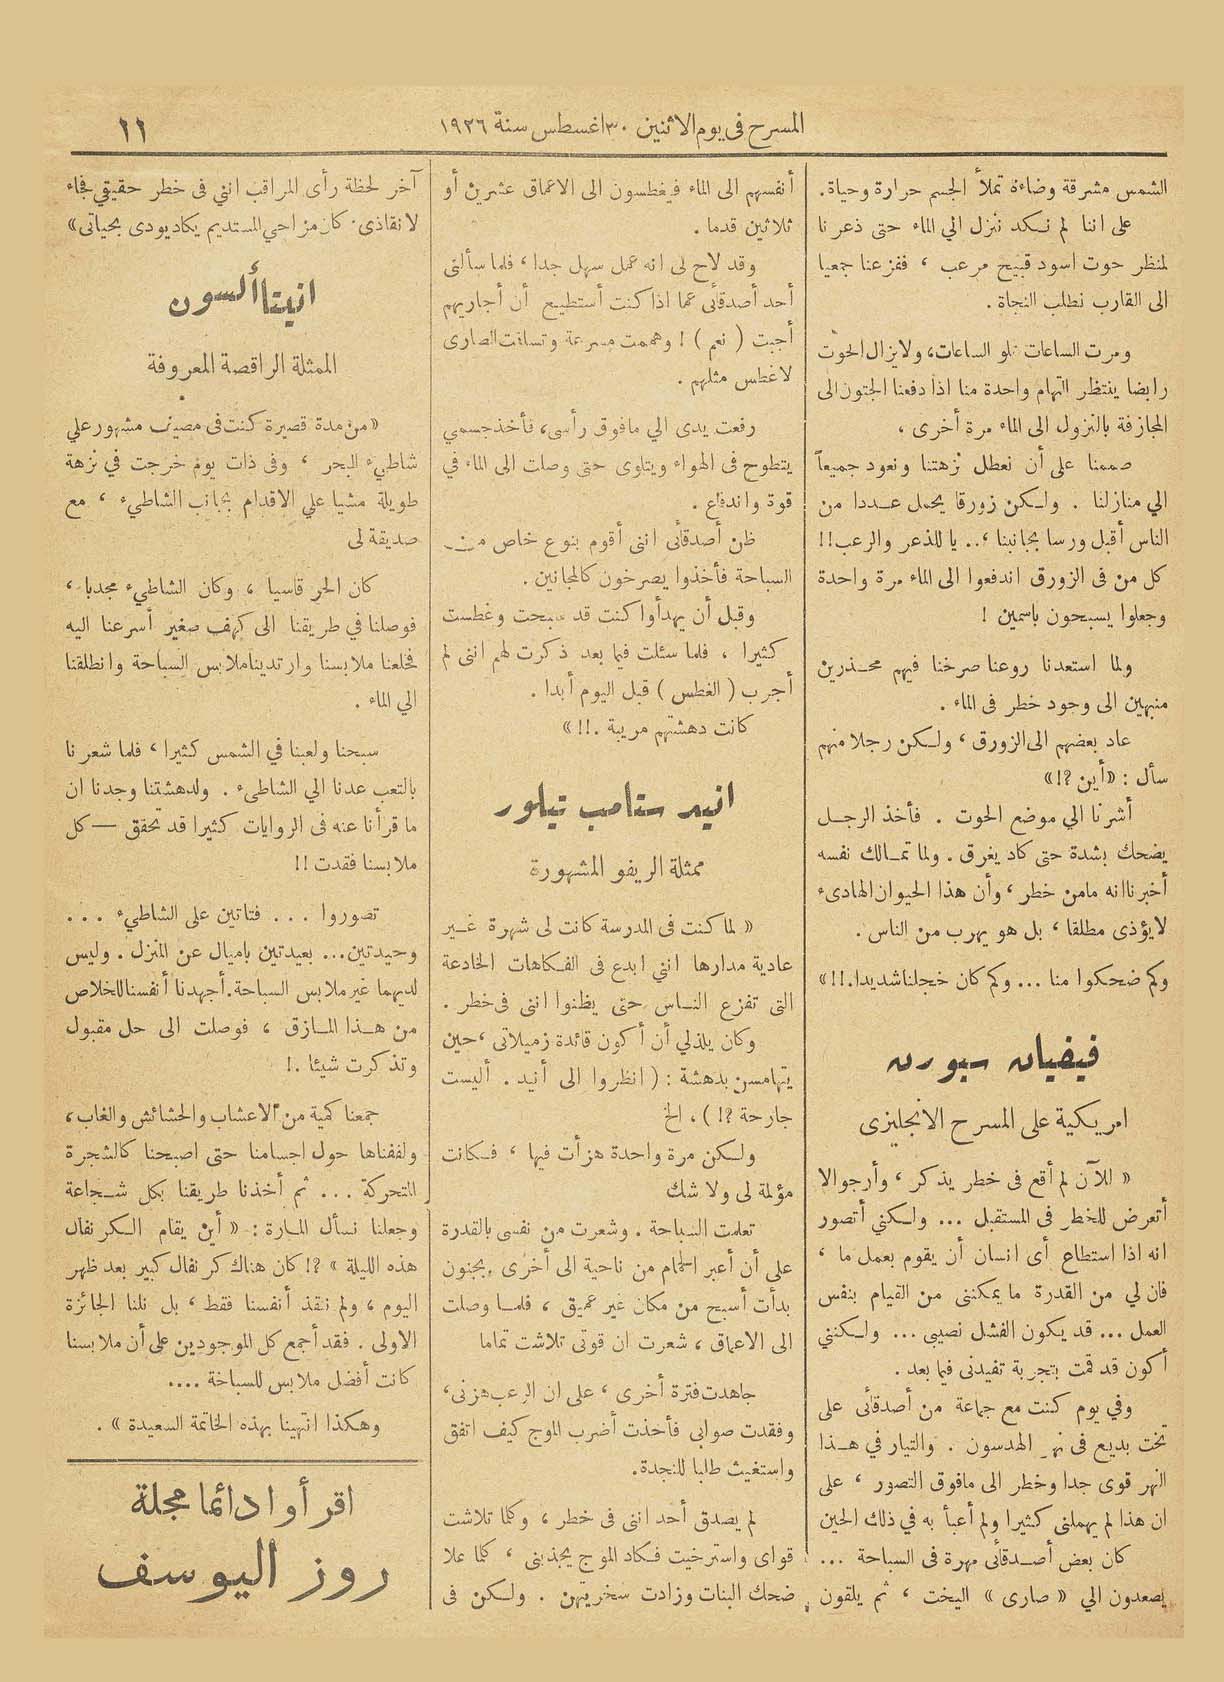 المسرح فى يوم الاثنين ٣٠ اغسطس سنة ١٩٢٦
١١
الشمس مشرقة وضاءة تملأ الجسم حرارة وحياة .
على اننا لم نكد ننزل الي الماء حتى ذعرنا
لمنظر حوت اسود قبيح مرعب ، ففزعنا جمعيا
الى القارب نطلب النجاة .
ومرت الساعات تلو الساعات، ولا يزال الحوت
رابضا ينتظر التهام واحدة منا اذا دفعنا الجنون الى
المجازفة بالنزول الى الماء مرة أخرى ،
صممنا على أن نعطل نزهتنا ونعود جميعاً
الي منازلنا . ولكن زورقا يحمل عددا من
الناس أقبل ورسا بجانبنا ،.. يا للذعر والرعب!!
كل من فى الزورق اندفعوا الى الماء مرة واحدة
وجعلوا يسبحون باسمين !
ولما استعدنا روعنا صرخنا فيهم محذرين
منبهين الى وجود خطر فى الماء .
عاد بعضهم الى الزورق ، ولكن رجلا منهم
سأل : «أين ؟!»
أشرنا الي موضع الحوت . فأخذ الرجل
يضحك بشدة حتى كاد يغرق . ولما تمالك نفسه
أخبرنا انه مامن خطر ، وأن هذا الحيوان الهادىء
لا يؤذى مطلقا ، بل هو يهرب من الناس .
وكم ضحكوا منا ... وكم كان خجلنا شديدا.!!»
فيفيان سبورن
امريكية على المسرح الانجليزى
« للآن لم أقع فى خطر يذكر ، وأرجو الا
أتعرض للخطر فى المستقبل ... ولكني أتصور
انه اذا استطاع أى انسان أن يقوم بعمل ما ،
فان لي من القدرة ما يمكننى من القيام بنفس
العمل ... قد يكون الفشل نصيبى ... ولكنني
أكون قد قمت بتجربة تفيدنى فيما بعد .
وفي يوم كنت مع جماعة من أصدقائى على
تخت بديع فى نهر الهدسون . والتيار في هذا
النهر قوى جدا وخطر الى مافوق التصور ، على
ان هذا لم يهملنى كثيرا ولم أعبأ به في ذلك الحين
كان بعض أصدقائى مهرة فى السباحة ...
يصعدون الي « صارى » اليخت ، ثم يلقون
أنفسهم الى الماء فيغطسون الى الاعماق عشرين أو
ثلاثين قدما .
وقد لاح لى انه عمل سهل جدا ، فلما سألنى
أحد أصدقائى عما اذا كنت أستطيع أن أجاريهم
أجبت ( نعم ) ! وهممت مسرعة وتسلقت الصارى
لاغطس مثلهم .
رفعت يدى الي مافوق رأسى، فأخذ جسمي
يتطوح فى الهواء ويتلوى حتى وصلت الى الماء في
قوة واندفاع .
ظن أصدقائى اننى أقوم بنوع خاص من
السباحة فأخذوا يصرخون كالمجانين .
وقبل أن يهدأوا كنت قد سبحت وغطست
كثيرا ، فلما سئلت فيما بعد ذكرت لهم اننى لم
أجرب ( الغطس ) قبل اليوم أبدا .
كانت دهشتهم مريبة .!! »
انيد ستامب تيلور
ممثلة الريفو المشهورة
« لما كنت فى المدرسة كانت لى شهرة غير
عادية مدارها انني ابدع فى الفكاهات الخادعة
التى تفزع الناس حتى يظنوا اننى فى خطر .
وكان يلذلي أن أكون قائدة زميلاتى ، حين
يتهامسن بدهشة : ( انظروا الى أنيد . أليست
جارحة ؟! ) ، الخ
ولكن مرة واحدة هزأت فيها ، فكانت
مؤلمة لى ولا شك
تعلمت السباحة . وشعرت من نفسى بالقدرة
على أن أعبر الحمام من ناحية الى أخرى . بجنون
بدأت أسبح من مكان غير عميق ، فلما وصلت
الى الاعماق ، شعرت ان قوتى تلاشت تماما
جاهدت فترة أخرى ، على ان الرعب هزنى ،
وفقدت صوابى فأخذت أضرب الموج كيف اتفق
واستغيث طلبا للنجدة .
لم يصدق أحد اننى فى خطر ، وكلما تلاشت
قواى واسترخيت فكاد الموج يجذبنى ، كلما علا
ضحك البنات وزادت سخريتهن . ولكن فى
آخر لحظة رأى المراقب اننى فى خطر حقيقي فجاء
لانقاذى . كان مزاحي المستديم يكاد يودى بحياتى»
انيتا ألسون
الممثلة الراقصة المعروفة
«من مدة قصيرة كنت فى مصيف مشهور علي
شاطيء البحر ، وفى ذات يوم خرجت في نزهة
طويلة مشيا علي الاقدام بجانب الشاطيء ، مع
صديقة لى
كان الحر قاسيا ، وكان الشاطيء مجدبا ،
فوصلنا في طريقنا الى كهف صغير أسرعنا اليه
فخلعنا ملابسنا وارتدينا ملابس السباحة وانطلقنا
الي الماء .
سبحنا ولعبنا في الشمس كثيرا ، فلما شعرنا
بالتعب عدنا الي الشاطىء . ولدهشتنا وجدنا ان
ما قرأنا عنه فى الروايات كثيرا قد تحقق — كل
ملابسنا فقدت !!
تصوروا ... فتاتين على الشاطيء ...
وحيدتين... بعيدتين باميال عن المنزل . وليس
لديهما غير ملابس السباحة. أجهدنا أنفسنا للخلاص
من هذا المازق ، فوصلت الى حل مقبول
وتذكرت شيئا .!
جمعنا كمية من الاعشاب والحشائش والغاب ،
ولففناها حول اجسامنا حتى اصبحنا كالشجرة
المتحركة ... ثم أخذنا طريقنا بكل شجاعة
وجعلنا نسأل المارة : « أين يقام الكرنفال
هذه الليلة » ؟! كان هناك كرنفال كبير بعد ظهر
اليوم ، ولم ننقذ أنفسنا فقط ، بل نلنا الجائزة
الاولى . فقد أجمع كل الموجودين على أن ملابسنا
كانت أفضل ملابس للسباحة ....
وهكذا انتهينا بهذه الخاتمة السعيدة » .
اقرأوا دائما مجلة
روز اليوسف